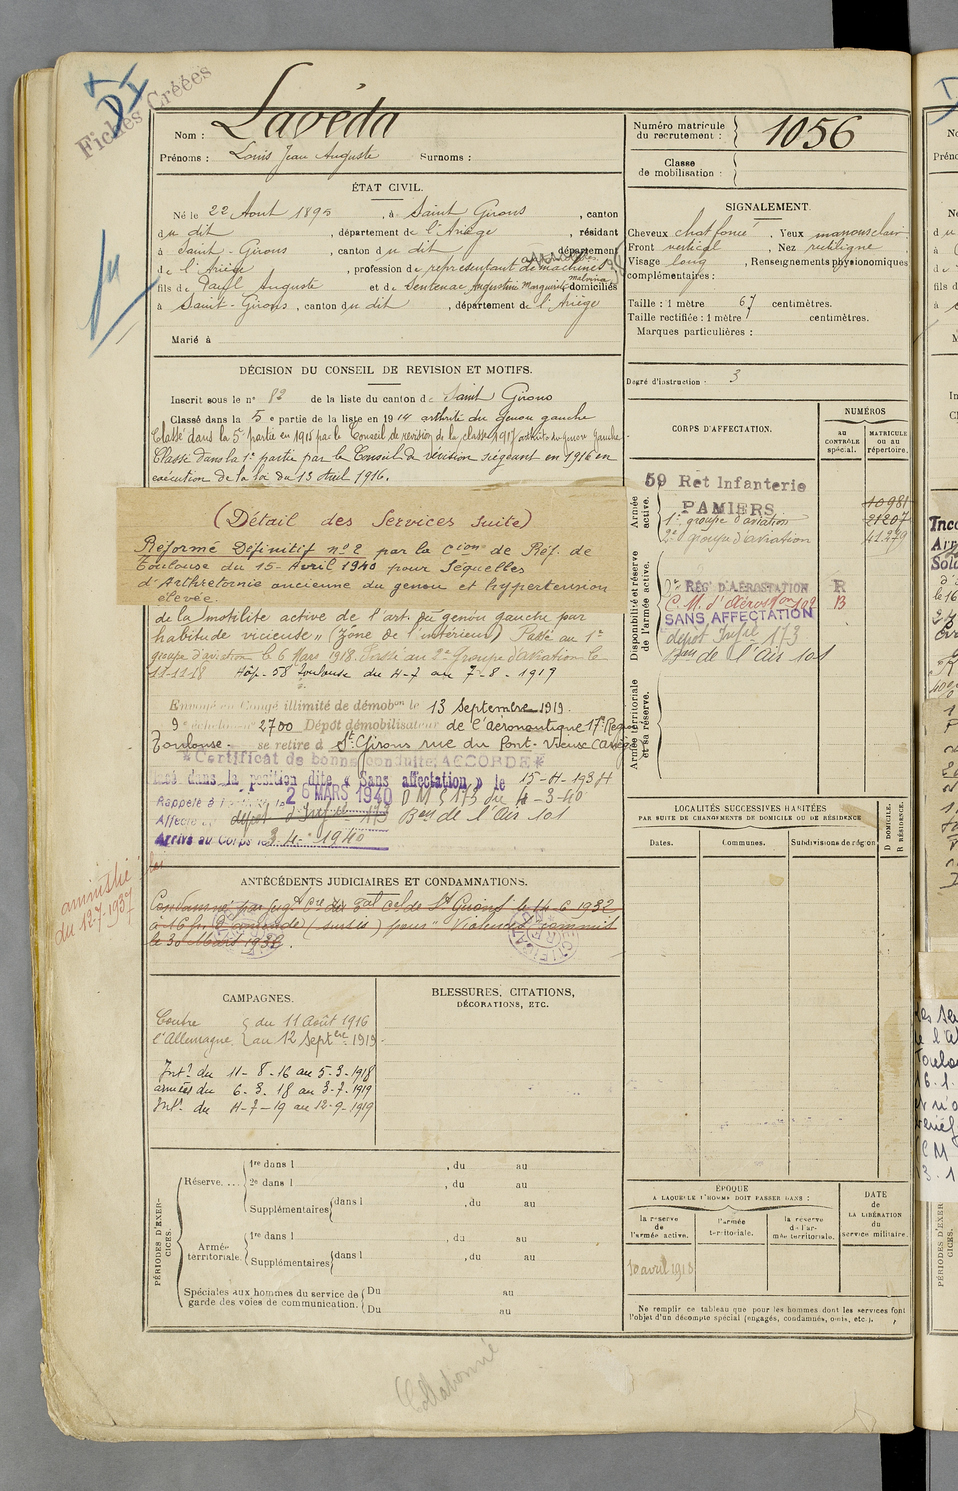 Fiches Créées
DI
Nom : Lavéda
Prénoms : Louis Jean Auguste Surnoms :
Numéro matricule du recrutement : 1056
Classe de mobilisation :
ÉTAT CIVIL.
Né le 22 Aout 1895, à Saint Girons, canton
du dit, département de l'Ariège, résidant
à Saint-Girons, canton du dit, département
de l'Ariège, profession de représentant de machines
fils de Paul Auguste et de Sentenac Augustine Marguerite Malvina domiciliés
à Saint-Girons, canton du dit, département de l'Ariège
Marié à
SIGNALEMENT.
Cheveux chat foncé. Yeux marron clair
Front vertical, Nez rectiligne
Visage long, Renseignements physionomiques
complémentaires :
Taille : 1 mètre 67 centimètres.
Taille rectifiée : 1 mètre centimètres.
Marques particulières :
Degré d'instruction : 3
DÉCISION DU CONSEIL DE REVISION ET MOTIFS.
Inscrit sous le n° 82 de la liste du canton de Saint Girons
Classé dans la 5e partie de la liste en 1914 arthrite du genou gauche
Classé dans la 5e partie en 1915 par le Conseil de revision de la classe 1917 arthrite du genou gauche
Classé dans la 1e partie par le Conseil de revision siégeant en 1916 en
exécution de la loi du 13 Avril 1916.
(Détail des Services suite)
Réformé Définitif n° 2 par la Cion de Réf. de
Toulouse du 15-Avril 1940 pour Séquelles
d'Arthrotomie ancienne du genou et hypertension
élevée.
de la motilité active de l'art. du genou gauche par
habitude vicieuse" (Zone de l'intérieur) Passé au 1e
groupe d'aviation le 6 Mars 1918. Passé au 2e Groupe d'aviation le
11-11-18 Hôp. 58 Toulouse du 4-7 au 7-8-1919
Envoyé en Congé illimité de démobon le 13 Septembre 1919.
9e échelon n° 2700 Dépôt démobilisateur de l'aéronautique 17e Région
Toulouse se retire à St Girons rue du Pont-Vieux (Ariège)
"Certificat de bonne conduite: ACCORDÉ"
lassé dans la position dite « Sans affectation » le 15-4-1934
Rappelé à l'activité le 26 MARS 1940 D M S 173 du 4-3-40
Affecté au dépot d'Infie 173 Bon de l'Air 101
Arrivé au Corps le 3-4-1940
CORPS D'AFFECTATION.
NUMÉROS
AU CONTRÔLE spécial.
MATRICULE ou au répertoire.
Armée active.
59 Rét Infanterie
PAMIERS 10981
1er groupe d'aviation 21207
2e groupe d'aviation 41279
Disponibilité et réserve de l'armée active.
2e RÉG' D'AÉROSTATION R
C. M. d'Aéroston 102 B
SANS AFFECTATION
dépot Infie 173
Bon de l'Air 101
Armée territoriale et sa réserve.
LOCALITÉS SUCCESSIVES HABITÉES
PAR SUITE DE CHANGEMENTS DE DOMICILE OU DE RÉSIDENCE
Dates.
Communes.
Subdivisions de région
D DOMICILE.
R RÉSIDENCE.
ANTÉCÉDENTS JUDICIAIRES ET CONDAMNATIONS.
amnistié
du 12-7-1937
Condamné par jugt Cel du Bal Cel de St Girons le 14-6-1932
à 16 fr. d'amende (sursis) pour "Violences" commis
le 30 Mars 1932.
CAMPAGNES.
Contre du 11 Août 1916
l'Allemagne. au 12 Septbre 1919.
Intr. du 11-8-16 au 5-3-1918
armées du 6-3-18 au 3-7-1919
Intr. du 4-7-19 au 12-9-1919
BLESSURES, CITATIONS,
DÉCORATIONS, ETC.
PÉRIODES D'EXERCICES.
Réserve....
1re dans l , du au
2e dans l , du au
Supplémentaires dans l , du au
Armée territoriale.
1re dans l , du au
Supplémentaires dans l , du au
Spéciales aux hommes du service de garde des voies de communication.
Du au
Du au
ÉPOQUE
A LAQUELLE L'HOMME DOIT PASSER DANS :
la réserve de l'armée active.
l'armée territoriale.
la réserve de l'armée territoriale.
DATE
DE
LA LIBÉRATION
du
service militaire.
10 avril 1918
Ne remplir ce tableau que pour les hommes dont les services font
l'objet d'un décompte spécial (engagés, condamnés, omis, etc.).
Collationné